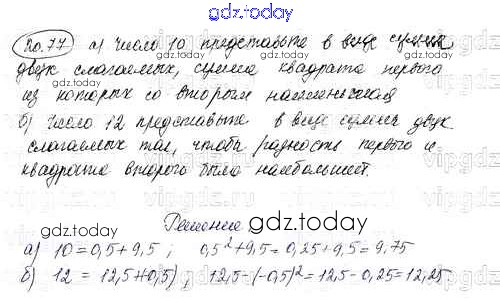 gdz.today
no.77 а) Число 10 представьте в виде суммы
двух слагаемых, сумма квадрата первого
из которых со вторым наименьшая
б) Число 12 представьте в виде суммы двух
слагаемых так, чтобы разность первого и
квадрата второго была наибольшей.
gdz.today
Решение
а) 10 = 0,5 + 9,5 ; 0,5² + 9,5 = 0,25 + 9,5 = 9,75
б) 12 = 12,5 + (-0,5) , 12,5 - (-0,5)² = 12,5 - 0,25 = 12,25
gdz.today